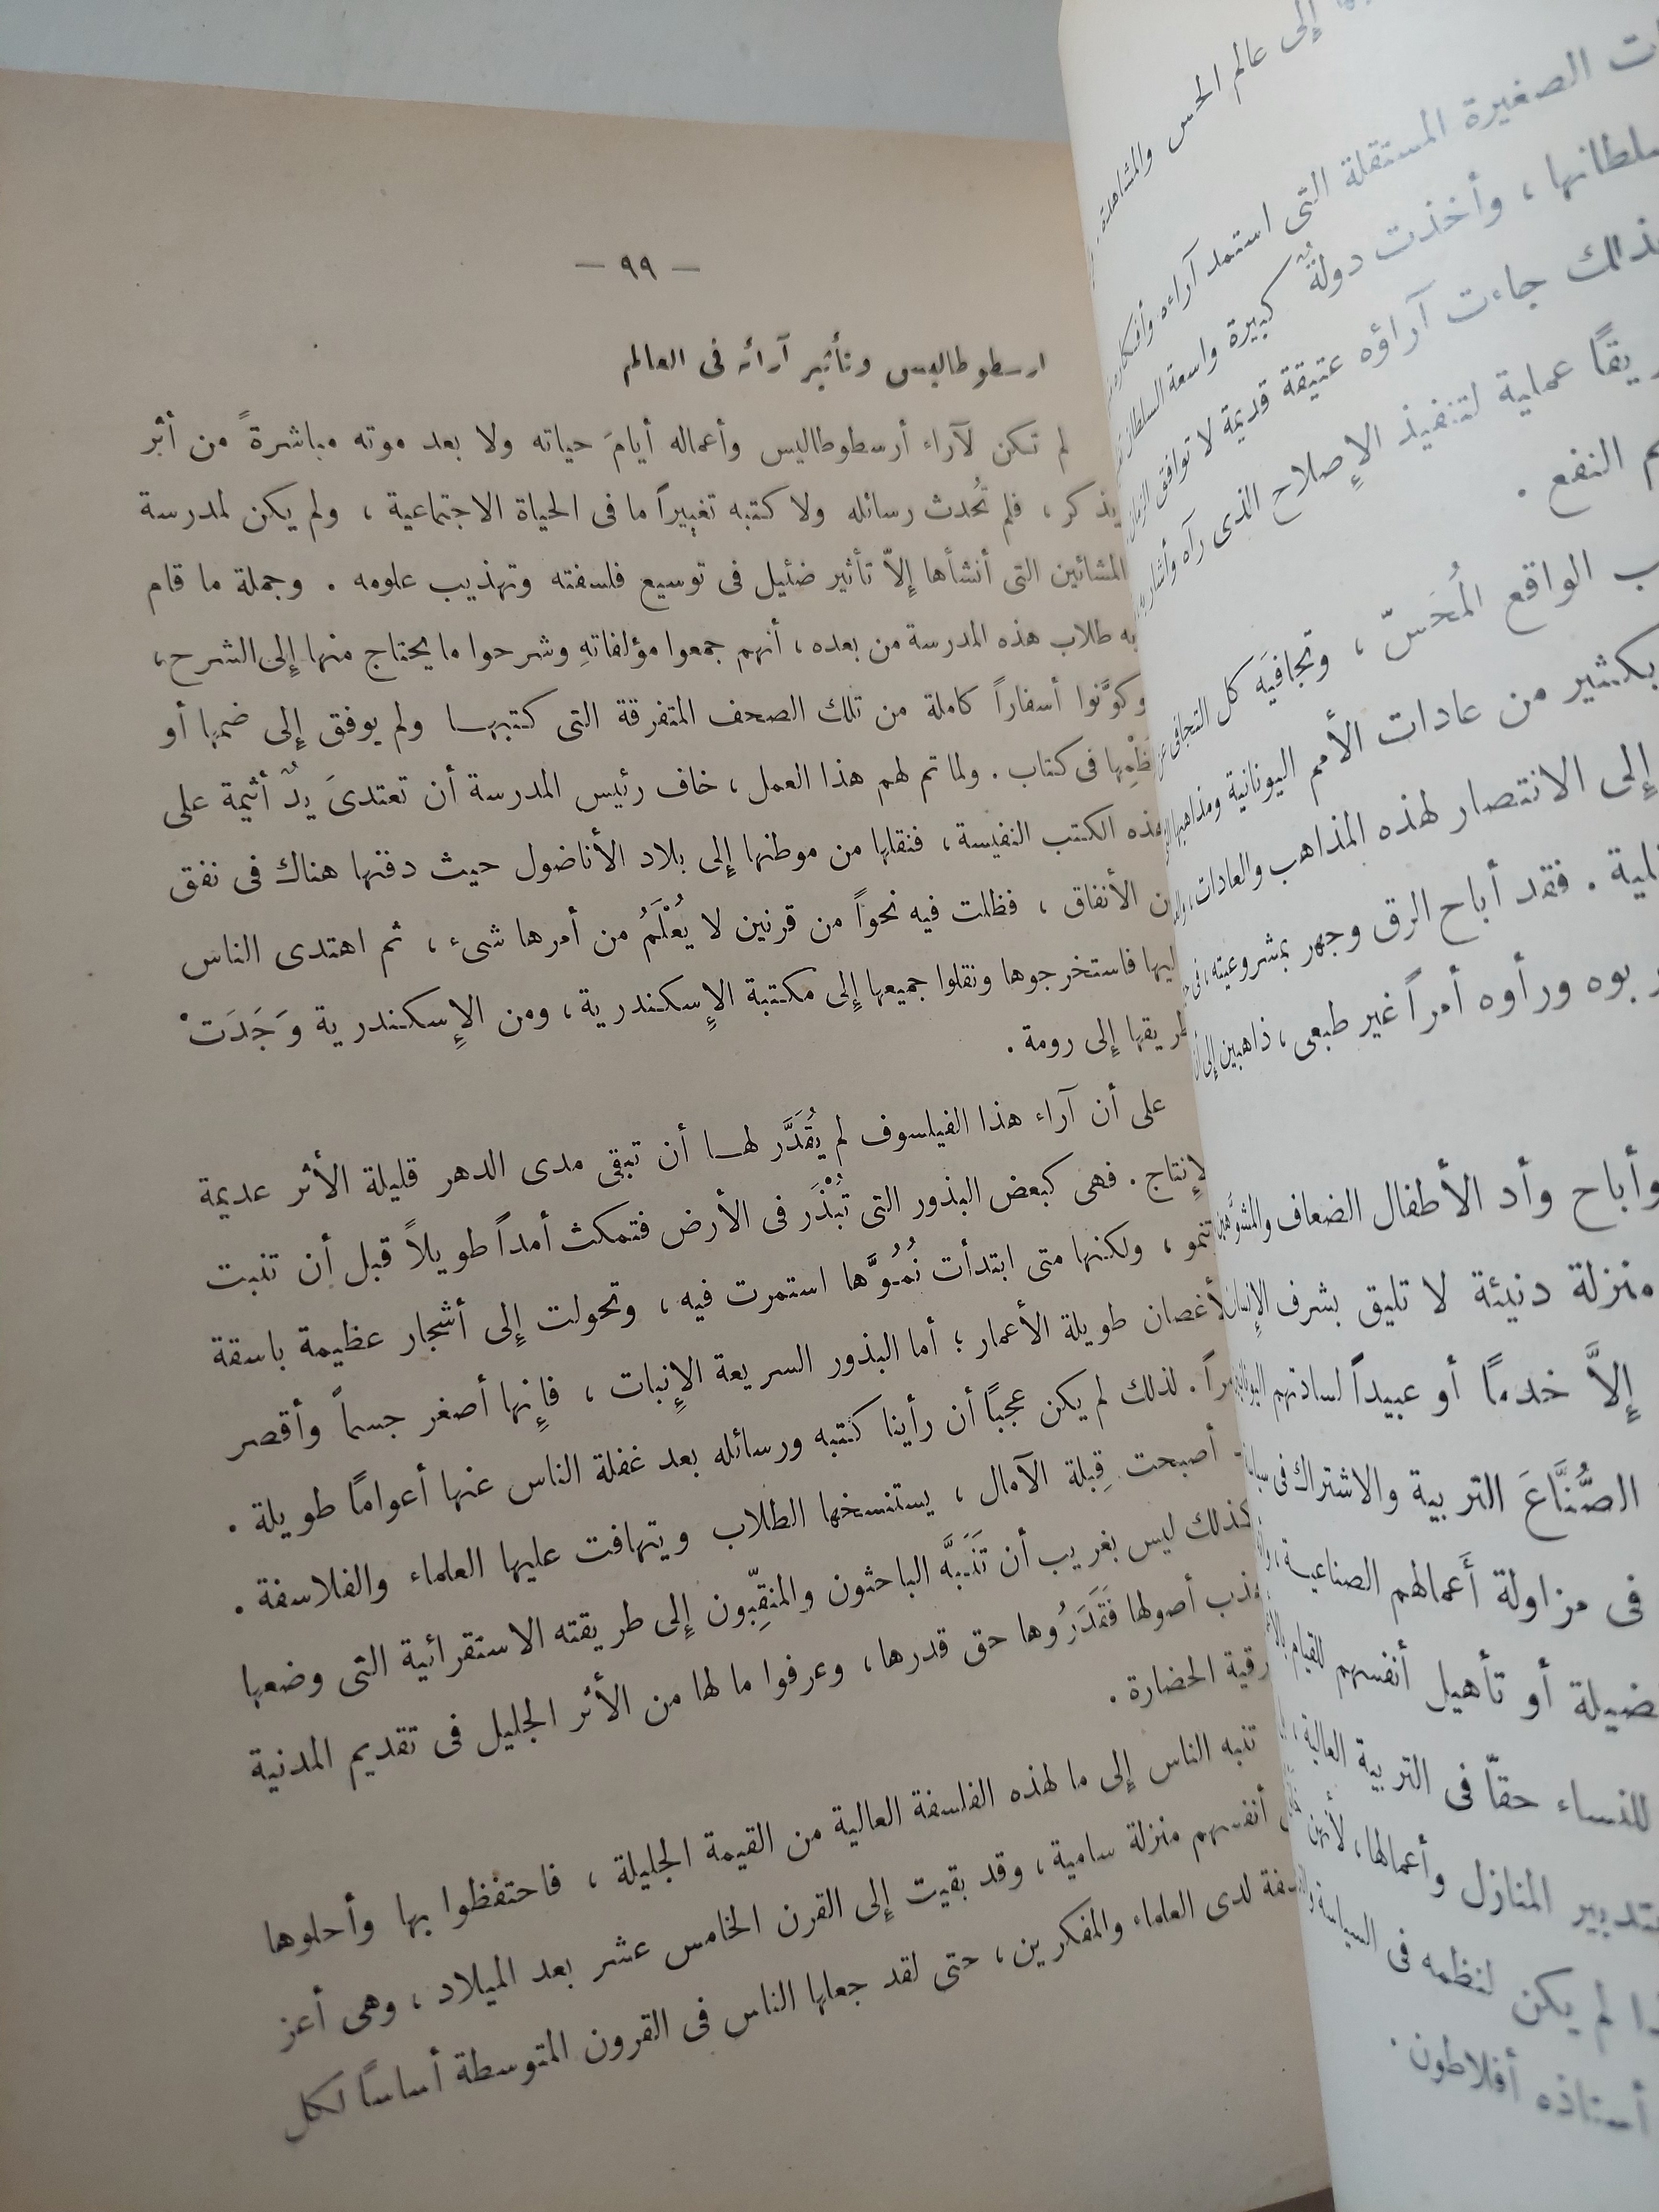 إلى عالم الحس والمشاهدة.
ات الصغيرة المستقلة التى استمد آراءه وأفكاره
سلطانها ، وأخذت دولةٌ كبيرة واسعة السلطان
ذلك جاءت آراؤه عتيقة قديمة لا توافق الزمان
يقًا عملية لتنفيذ الإصلاح الذى رآه وأشار به
م النفع .
ب الواقع المُحَسّ ، وتجافيَه كل التجافى عن
بكثير من عادات الأمم اليونانية ومذاهبها
إلى الانتصار لهذه المذاهب والعادات ،
لية . فقد أباح الرق وجهر بمشروعيته ، فى
ربوه ورأوه أمراً غير طبعى ، ذاهبين إلى أن
وأباح وأد الأطفال الضعاف والمشوَّهين
منزلة دنيئة لا تليق بشرف الإنسان
إلاَّ خدمًا أو عبيداً لسادتهم
الصُّنَّاعَ التربية والاشتراك فى
فى مزاولة أعمالهم الصناعية ،
ضيلة أو تأهيل أنفسهم للقيام
للنساء حقّاً فى التربية العالية ،
تدبير المنازل وأعمالها ، لأنهن
ذا لم يكن لنظمه فى السياسة
أستاذه أفلاطون .
— ٩٩ —
ارسطوطاليس وتأثير آرائه فى العالم
لم تكن لآراء أرسطوطاليس وأعماله أيامَ حياته ولا بعد موته مباشرةً من أثر
يذكر ، فلم تُحدث رسائله ولا كتبه تغييراً ما فى الحياة الاجتماعية ، ولم يكن لمدرسة
المشائين التى أنشأها إلاّ تأثير ضئيل فى توسيع فلسفته وتهذيب علومه . وجملة ما قام
به طلاب هذه المدرسة من بعده ، أنهم جمعوا مؤلفاتهِ وشرحوا ما يحتاج منها إلى الشرح ،
وكوَّنوا أسفاراً كاملة من تلك الصحف المتفرقة التى كتبها ولم يوفق إلى ضمها أو
نَظْمِها فى كتاب . ولما تم لهم هذا العمل ، خاف رئيس المدرسة أن تعتدىَ يدٌ أثيمة على
هذه الكتب النفيسة ، فنقلها من موطنها إلى بلاد الأناضول حيث دفنها هناك فى نفق
من الأنفاق ، فظلت فيه نحواً من قرنين لا يُعْلَمُ من أمرها شىء ، ثم اهتدى الناس
إليها فاستخرجوها ونقلوا جميعها إلى مكتبة الإسكندرية ، ومن الإسكندرية وَجَدَتْ
طريقها إلى رومة .
على أن آراء هذا الفيلسوف لم يُقَدَّر لها أن تبقى مدى الدهر قليلة الأثر عديمة
الإنتاج . فهى كبعض البذور التى تُبْذَر فى الأرض فتمكث أمداً طويلاً قبل أن تنبت
وتنمو ، ولكنها متى ابتدأت نُمُوَّها استمرت فيه ، وتحولت إلى أشجار عظيمة باسقة
الأغصان طويلة الأعمار ؛ أما البذور السريعة الإنبات ، فإنها أصغر جسماً وأقصر
عمراً . لذلك لم يكن عجبًا أن رأينا كتبه ورسائله بعد غفلة الناس عنها أعوامًا طويلة .
أصبحت قِبلة الآمال ، يستنسخها الطلاب ويتهافت عليها العلماء والفلاسفة .
كذلك ليس بغريب أن تَنَبَّه الباحثون والمنقِّبون إلى طريقته الاستقرائية التى وضعها
وهذب أصولها فَقَدَرُوها حق قدرها ، وعرفوا ما لها من الأثر الجليل فى تقديم المدنية
وترقية الحضارة .
تنبه الناس إلى ما لهذه الفلسفة العالية من القيمة الجليلة ، فاحتفظوا بها وأحلوها
أنفسهم منزلة سامية ، وقد بقيت إلى القرن الخامس عشر بعد الميلاد ، وهى أعز
لدى العلماء والمفكرين ، حتى لقد جعلها الناس فى القرون المتوسطة أساسًا لكل